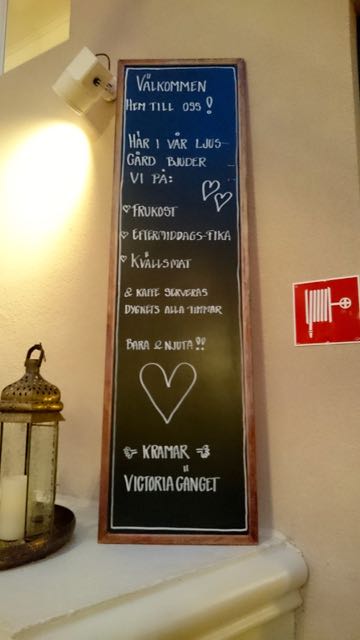 VÄLKOMMEN
HEM TILL OSS!
HÄR I VÅR LJUS-
GÅRD BJUDER
VI PÅ:
FRUKOST
EFTERMIDDAGS-FIKA
KVÄLLSMAT
& KAFFE SERVERAS
DYGNETS ALLA TIMMAR
BARA 2 NJUTA!!
KRAMAR
VICTORIA GÄNGET